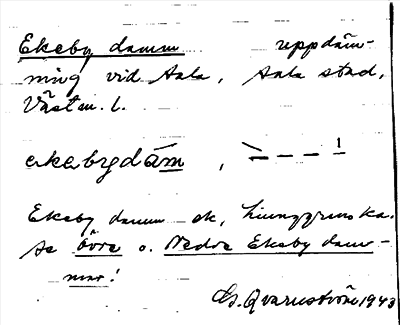 Ekeby damm uppdäm-
ning vid Sala, Sala stad,
Västm. l.
ekebydám̲m, \ – – – 1
Ekeby damm ek,
se Övre o. Nedre Ekeby dam-
mar!
G. Qvarnström 1943